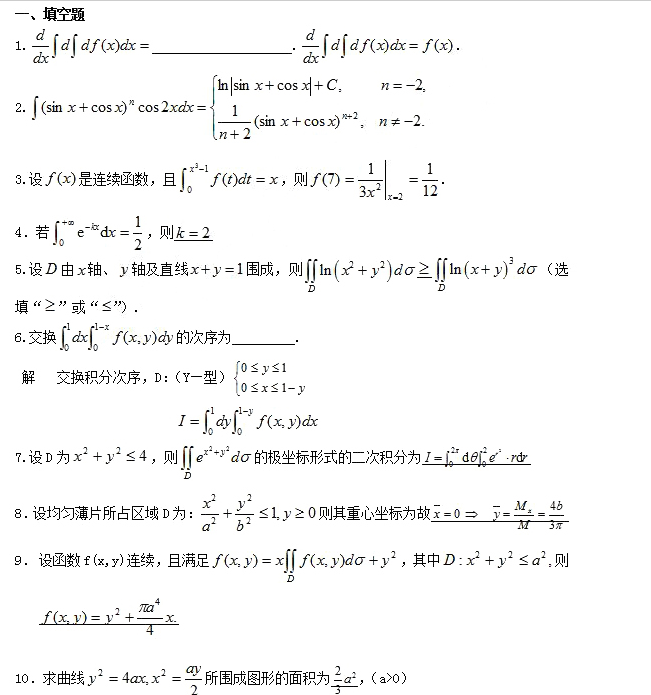 一、填空题
1. \frac{d}{dx}\int d\int df(x)dx = ____________________. \frac{d}{dx}\int d\int df(x)dx = f(x).
2. \int (\sin x + \cos x)^n \cos 2xdx = \begin{cases} \ln|\sin x + \cos x| + C, & n = -2, \\ \frac{1}{n+2}(\sin x + \cos x)^{n+2}, & n \neq -2. \end{cases}
3.设 f(x) 是连续函数，且 \int_0^{x^3-1} f(t)dt = x，则 f(7) = \frac{1}{3x^2}|_{x=2} = \frac{1}{12}.
4. 若 \int_0^{+\infty} e^{-kx}dx = \frac{1}{2}，则 k = 2
5.设 D 由 x 轴、y 轴及直线 x + y = 1 围成，则 \iint_D \ln(x^2 + y^2)d\sigma ≥ \iint_D \ln(x + y)^3 d\sigma（选
填“≥”或“≤”）.
6.交换 \int_0^1 dx\int_0^{1-x} f(x, y)dy 的次序为_________.
解 交换积分次序，D:（Y—型） \begin{cases} 0 ≤ y ≤ 1 \\ 0 ≤ x ≤ 1 - y \end{cases}
I = \int_0^1 dy\int_0^{1-y} f(x, y)dx
7.设D为 x^2 + y^2 ≤ 4，则 \iint_D e^{x^2+y^2}d\sigma 的极坐标形式的二次积分为 I = \int_0^{2\pi} d\theta\int_0^2 e^{r^2} · rdr
8.设均匀薄片所占区域D为: \frac{x^2}{a^2} + \frac{y^2}{b^2} ≤ 1, y ≥ 0 则其重心坐标为故 \bar{x} = 0 ⇒ \bar{y} = \frac{M_x}{M} = \frac{4b}{3\pi}
9. 设函数f(x,y)连续，且满足 f(x, y) = x\iint_D f(x, y)d\sigma + y^2，其中 D : x^2 + y^2 ≤ a^2, 则
f(x, y) = y^2 + \frac{\pi a^4}{4}x.
10. 求曲线 y^2 = 4ax, x^2 = \frac{ay}{2} 所围成图形的面积为 \frac{2}{3}a^2,(a>0)